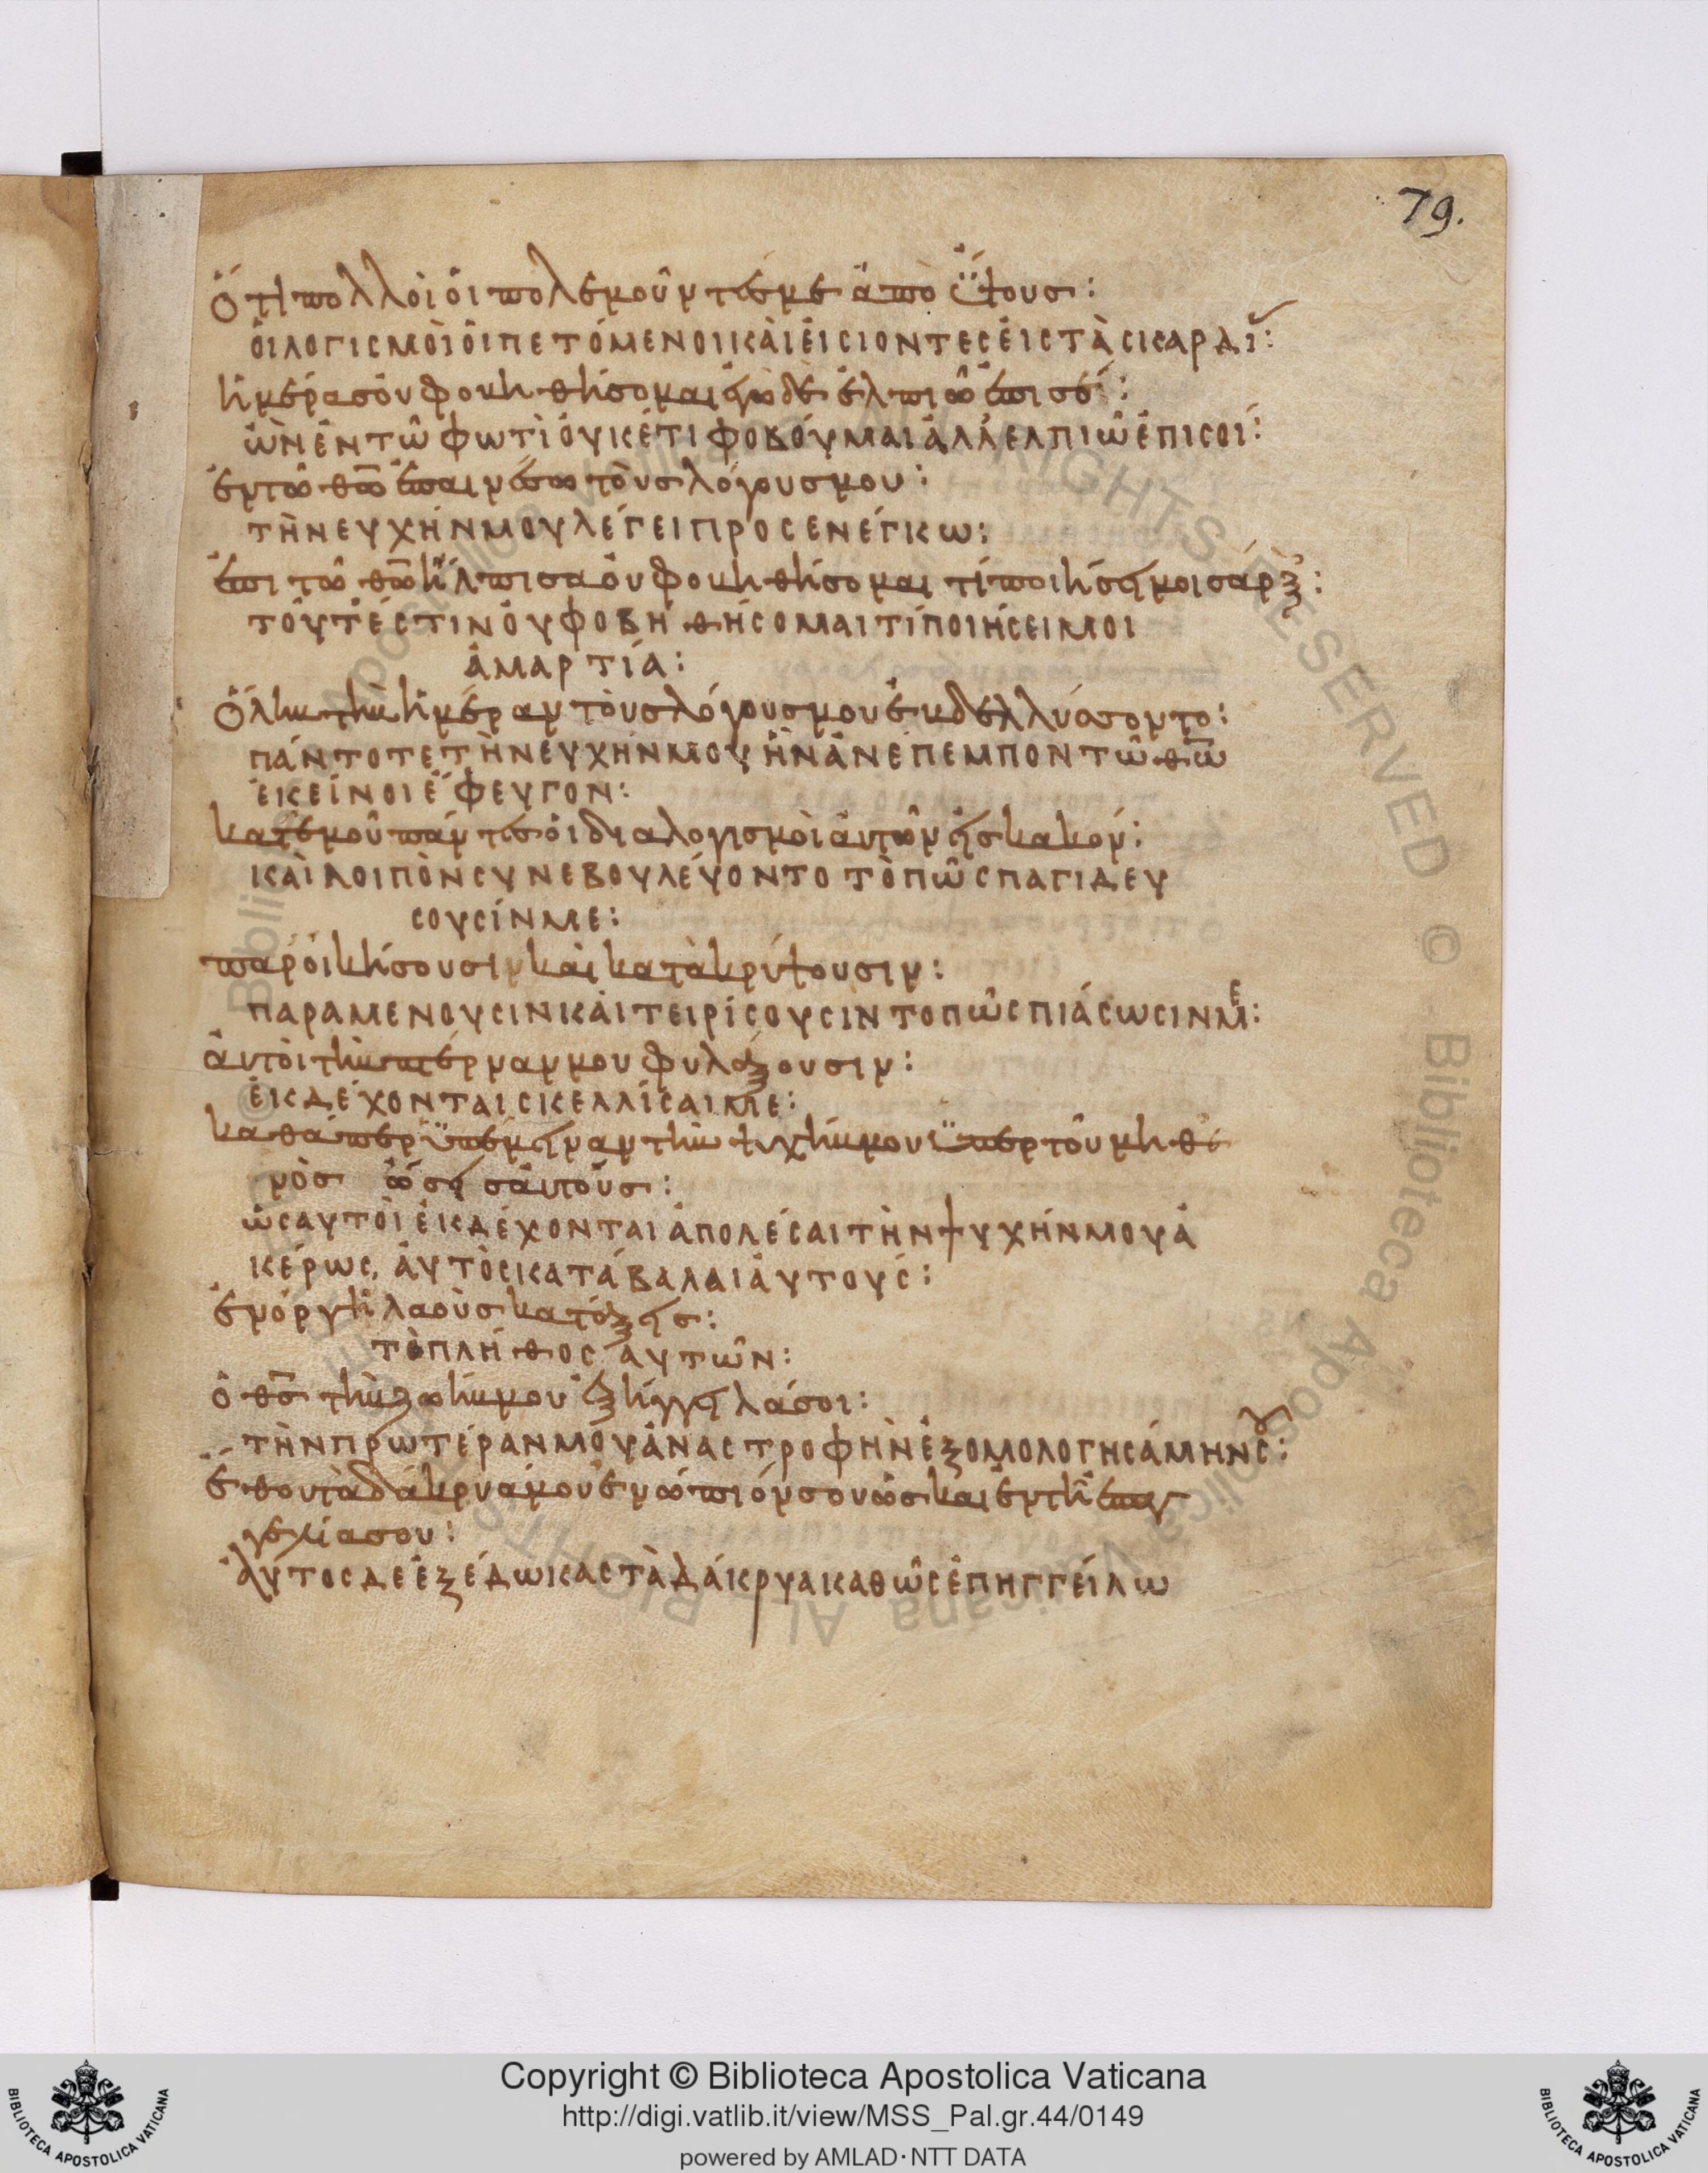 79.
Ὅτι πολλοὶ ὁι πολεμοῦντές με ἀπὸ ὕψους:
ὁι λογισμοὶ ὁι πετόμενοι κὰι ἐισιοντες ἐις τὰς καρδί:
ἡμέρας ὀυ φοβηθήσομαι ἐγὼ δὲ ἐλπιῶ ἐπι σέ:
ὢν ἐν τῶ φωτὶ ὀυκέτι φοβόυμαι ἀλλ ελπιῶ ἐπι σοί:
ἐν τῶ θῶ ἐπαινέσω τὸυς λόγους μου:
τὴν ευχήν μου λέγει προσενέγκω:
ἐπι τῶ θῶ ἤλπισα ὀυ φοβηθήσομαι τί ποιήσει μοι σάρξ:
τὀυτέστιν ὀυ φοβηθήσομαι τί ποιήσει μοι
ἁμαρτία:
Ὅλην τὴν ἡμέραν τὸυς λόγους μου ἐβδελλύσσοντο:
πάντοτε τὴν ευχήν μου ἣν ἀνέπεμπον τῶ θῶ
ἐκεῖνοι ἔφευγον:
κατ ἐμοῦ πάντες ὁι διαλογισμοὶ ἀυτῶν ἐις κακόν:
κὰι λοιπὸν συνεβουλέυοντο τὸ πῶς παγιδευ
σουσίν με:
παρὀικήσουσιν κὰι κατὰκρύψουσιν:
παραμενουσιν κὰι τειρίσουσιν το πῶς πιάσωσιν με:
ἀυτὸι τὴν πτέρναν μου φυλάξουσιν:
ἐκδέχονται σκελλίσαι με:
καθάπερ ὑπέμειναν τὴν ψυχήν μου ὑπερ τοῦ μηθε
νὸς ὤσεις ἀυτόυς:
ὡς αυτὸι ἐκδέχονται ἀπολέσαι τὴν ψυχήν μου ἀ
κέρως, ἀυτὸς κατάβαλαι ἀυτους:
ἐν ὀργῆ λαὸυς κατάξεις:
τὸ πλῆθος ἀυτῶν:
ὁ θς τὴν ζωήν μου ἐξήγγειλά σοι:
τὴν πρωτέραν μόυ ἀναστροφὴν ἐξομολογησάμην σ:
ἔθου τὰ δάκρυά μου ἐνώπιόν σου ὡς και ἐν τῆ ἐπαγ
γελία σου:
ἀυτος δε ἐξέδωκας τὰ δάκρυα καθὼς ἐπηγγείλω
Copyright © Biblioteca Apostolica Vaticana
http://digi.vatlib.it/view/MSS_Pal.gr.44/0149
powered by AMLAD·NTT DATA
BIBLIOTECA APOSTOLICA VATICANA
BIBLIOTECA APOSTOLICA VATICANA